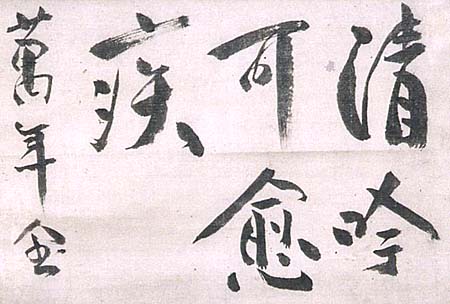 清吟
可愈
疾
萬年全